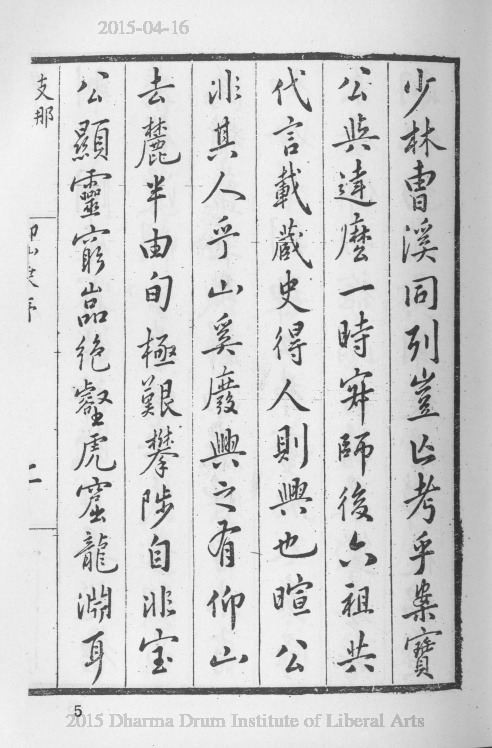 2015-04-16
少林曺溪同列豈亡考乎案寶
公與達麼一時寂師後六祖共
代言載蔵史得人則興也暄公
非其人乎山奚廢興之有仰山
去麓半由旬極艱攀陟自非宝
公顯靈窮嵓绝壑虎窟龍淵耳
支那
二
5
2015 Dharma Drum Institute of Liberal Arts